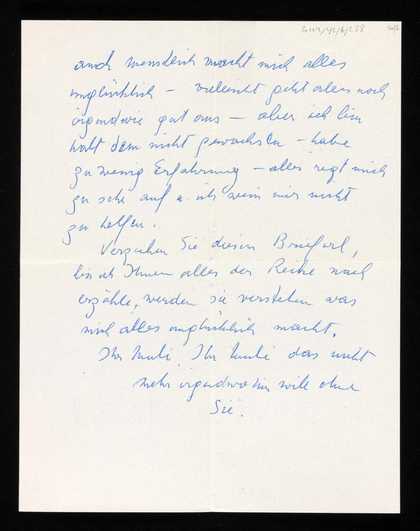 auch menschlich macht mich alles
unglücklich – vielleicht geht alles noch
irgendwie gut aus – aber ich bin
halt dem nicht gewachsen – habe
zu wenig Erfahrung – alles regt mich
zu sehr auf u. ich weiss mir nicht
zu helfen.
Verzeihen Sie diesen Brief
bis ich Ihnen alles der Reihe nach
erzähle, werden sie verstehen was
mich alles unglücklich macht.
Ihr Ihr das nicht
mehr irgendwo hin will ohne
Sie.